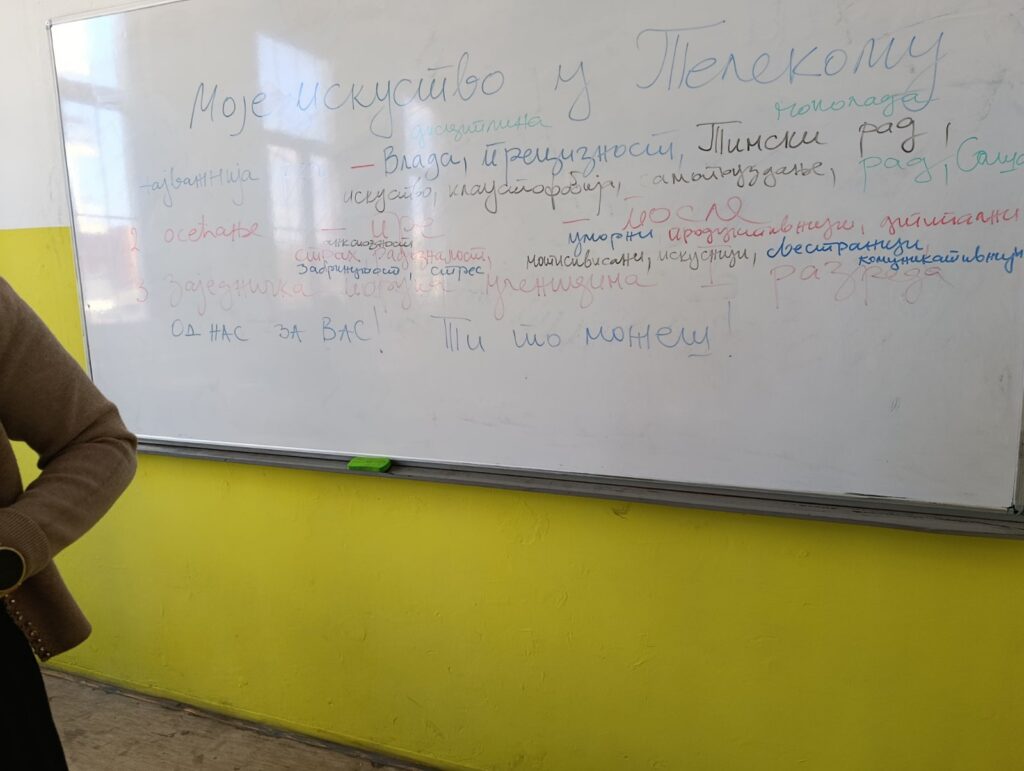 Моје искуство у Телекому
дисциплина чоколада
најважнија — Влада, прецизност, Тимски рад,
искуство, клаустофобија, самопоуздање, рад, Саша
2 осећање — пре — после
анксиозност уморни, продуктивнији, дигитални
страх, радозналост, мотивисани, искуснији, свестранији,
забринутост, стрес комуникативнији
3 заједничка порука ученицима I разреда
ОД НАС ЗА ВАС! Ти то можеш!